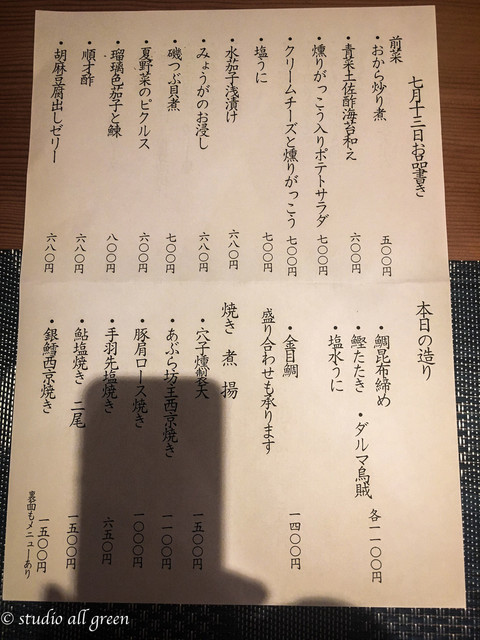 七月十三日お品書き
前菜
・おから炒り煮 五〇〇円
・青菜土佐酢海苔和え 六〇〇円
・燻りがっこう入りポテトサラダ 七〇〇円
・クリームチーズと燻りがっこう 七〇〇円
・塩うに 七〇〇円
・水茄子浅漬け 六八〇円
・みょうがのお浸し 六八〇円
・磯つぶ貝煮 七〇〇円
・夏野菜のピクルス 六〇〇円
・瑠璃色茄子と鰊 八〇〇円
・順才酢 六八〇円
・胡麻豆腐出しゼリー 六八〇円
本日の造り
・鯛昆布締め ・ダルマ烏賊 各一一〇〇円
・鰹たたき
・塩水うに
・金目鯛 一四〇〇円
盛り合わせも承ります
焼き 煮 揚
・穴子燻製天 一五〇〇円
・あぶら坊主西京焼き 一一〇〇円
・豚肩ロース焼き 一〇〇〇円
・手羽先塩焼き 六五〇円
・鮎塩焼き 二尾 一五〇〇円
・銀鱈西京焼き 一五〇〇円
裏面もメニューあり
© studio all green